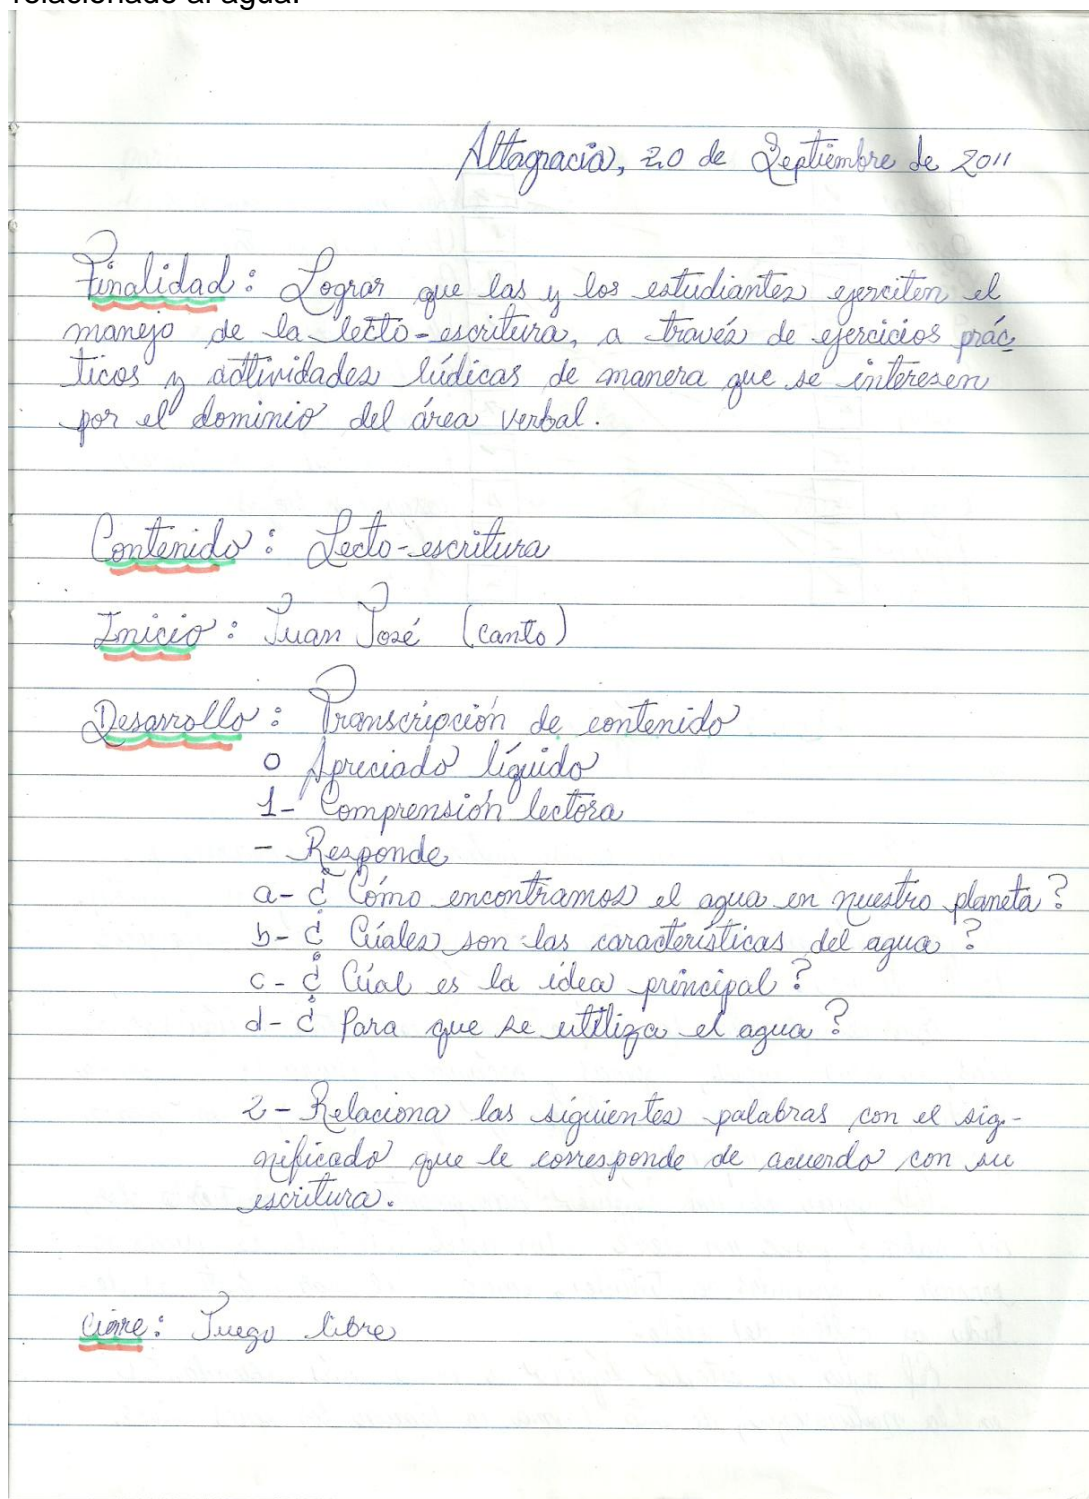 relacionado al agua.
Altagracia, 20 de Septiembre de 2011
Finalidad: Lograr que las y los estudiantes ejerciten el
manejo de la lecto-escritura, a través de ejercicios prác
ticos y actividades lúdicas de manera que se interesen
por el dominio del área verbal.
Contenido: Lecto-escritura
Inicio: Juan José (canto)
Desarrollo: Transcripción de contenido
o Apreciado líquido
1- Comprensión lectora
- Responde
a- ¿Cómo encontramos el agua en nuestro planeta?
b- ¿Cúales son las características del agua?
c- ¿Cúal es la idea principal?
d- ¿Para que se utiliza el agua?
2- Relaciona las siguientes palabras con el sig-
nificado que le corresponde de acuerdo con su
escritura.
Cierre: Juego libre